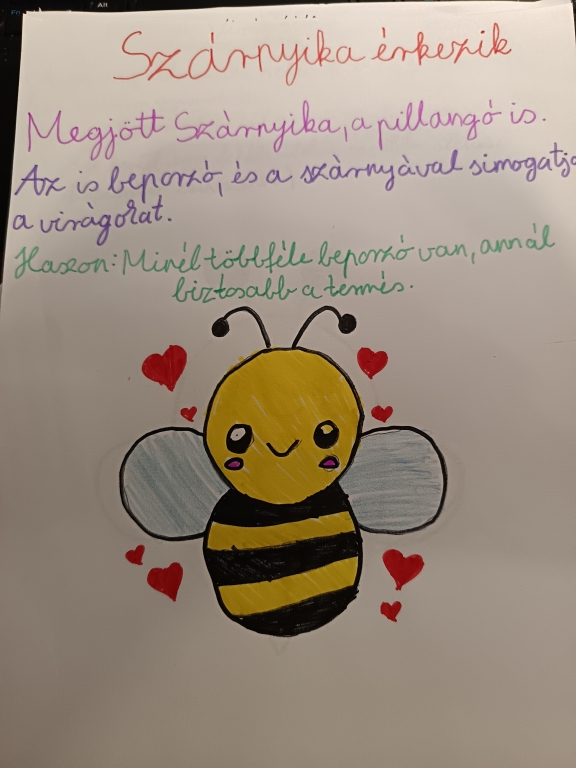 Szárnyika érkezik
Megjött Szárnyika, a pillangó is.
Az is beporzó, és a szárnyával simogatja
a virágokat.
Haszon: Minél többféle beporzó van, annál
biztosabb a termés.